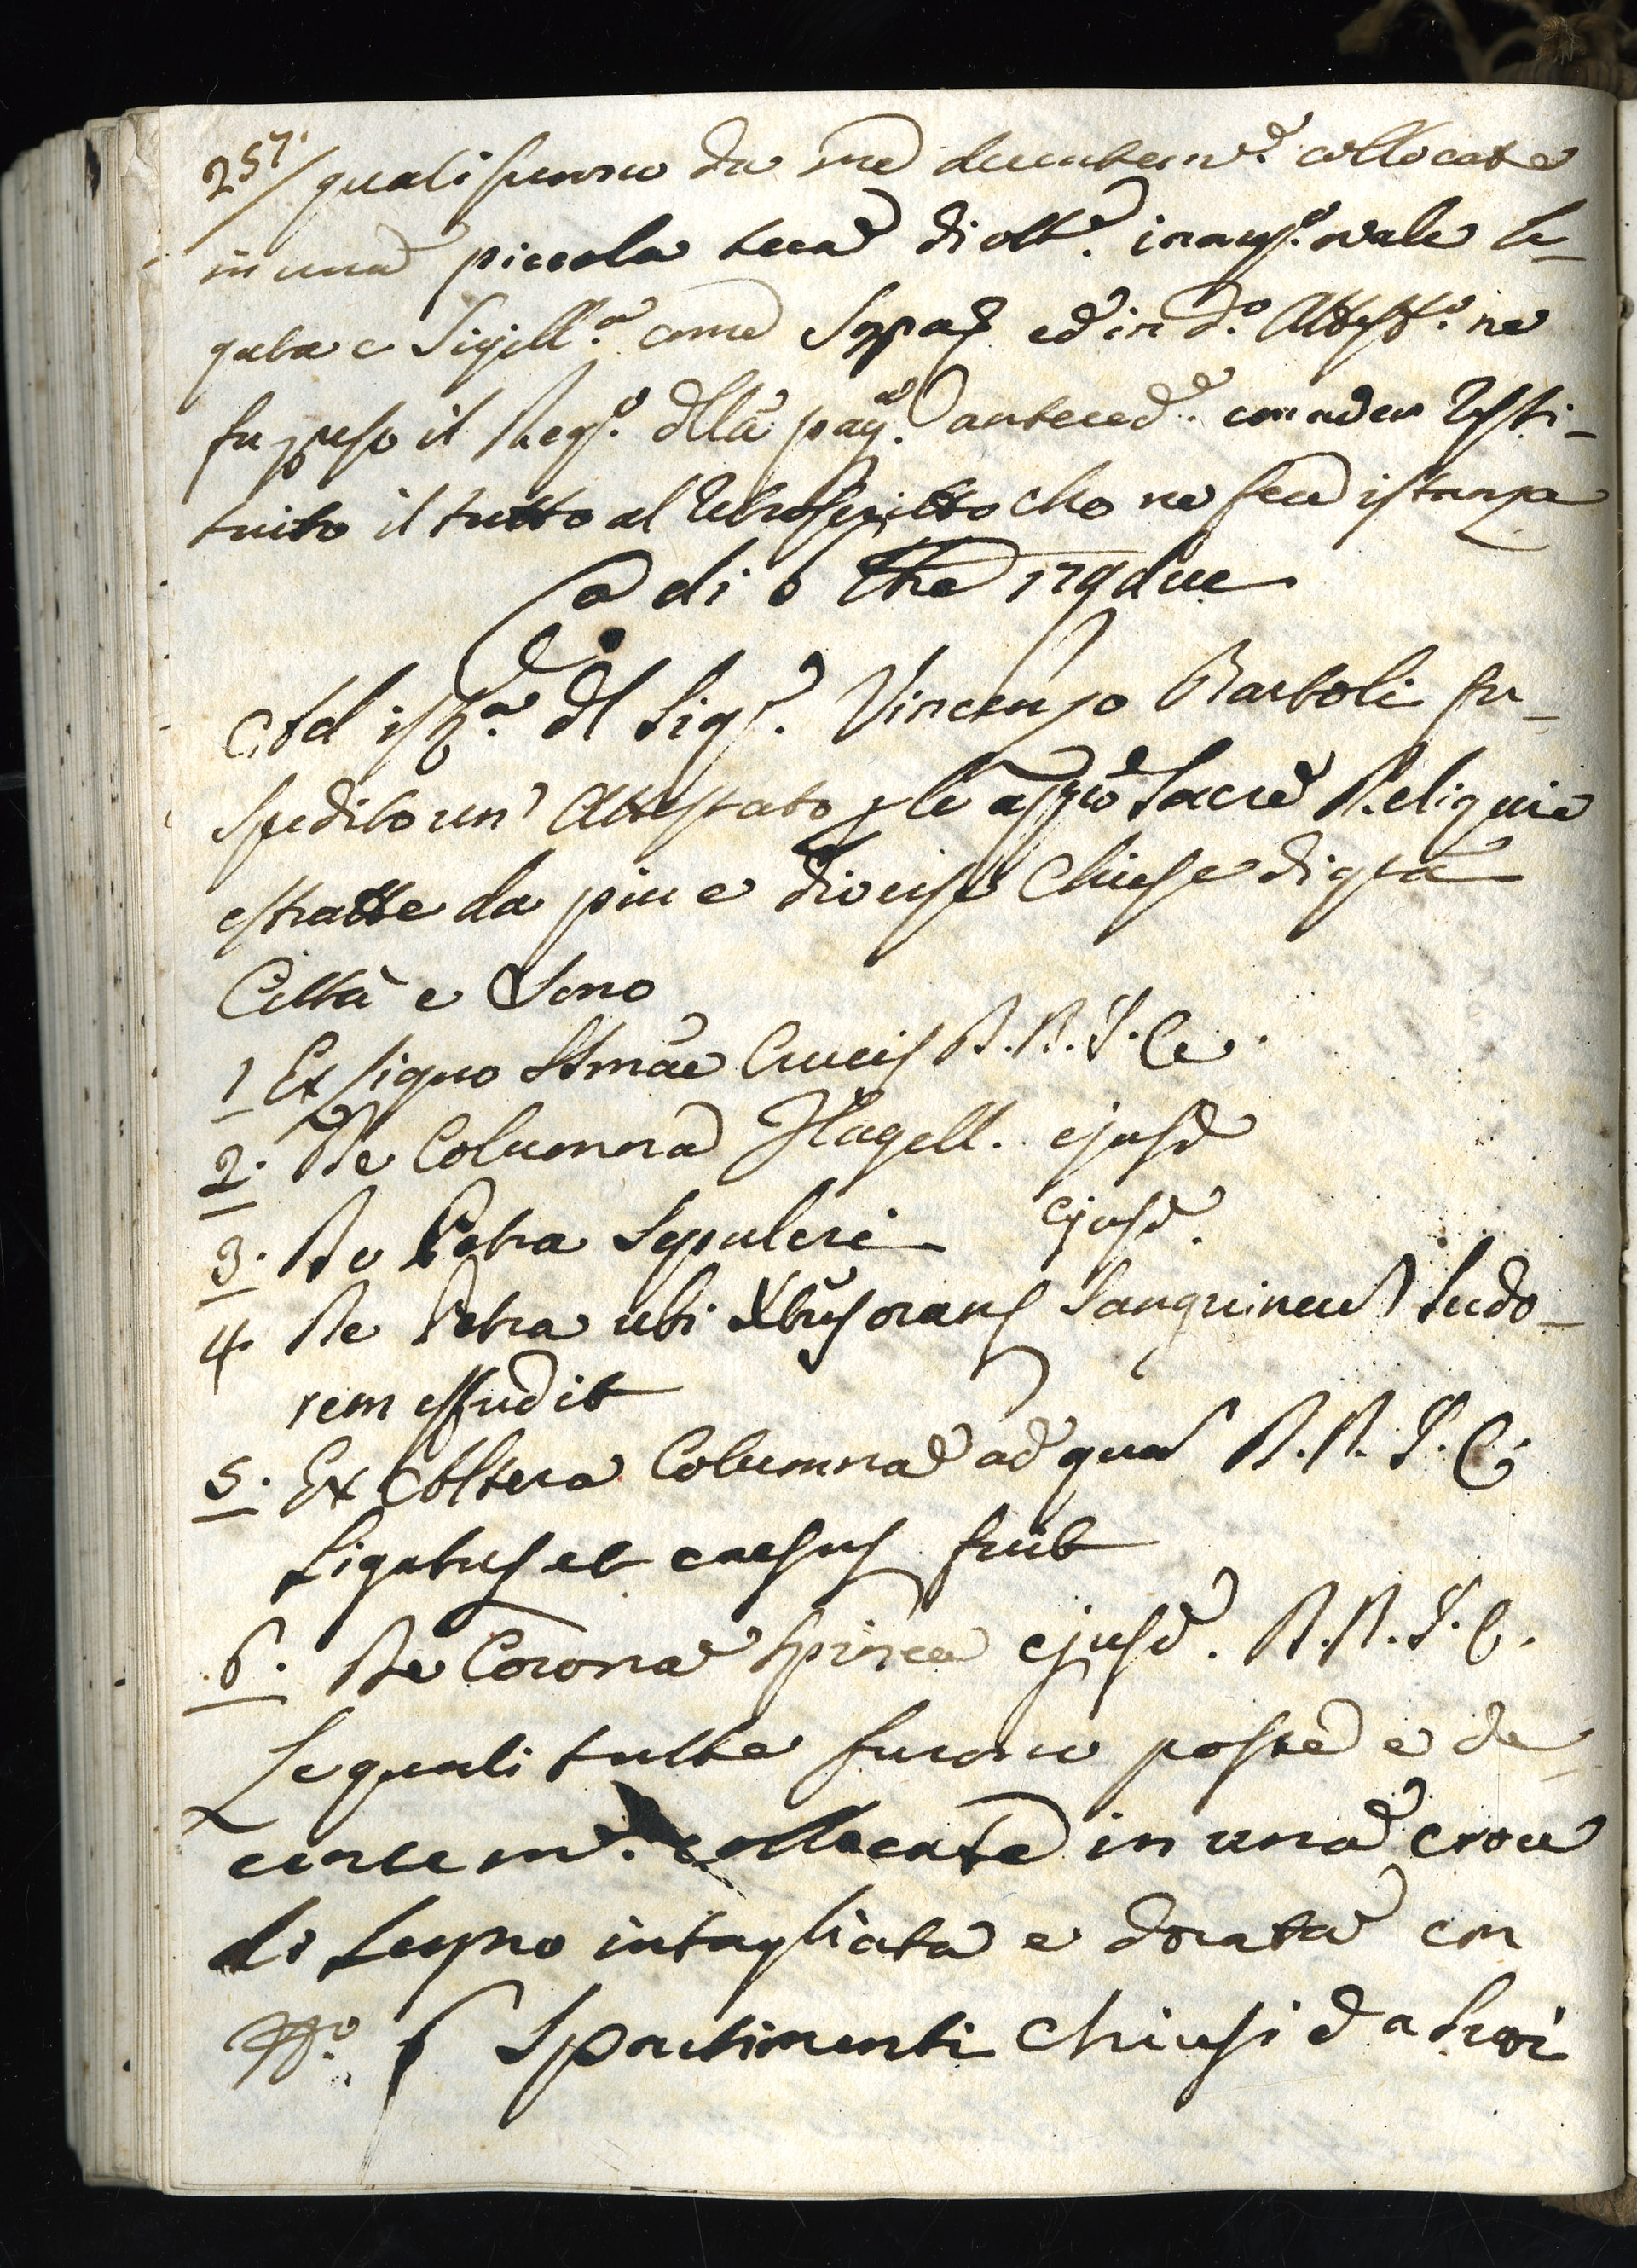 257.
quali furono da me decentem.e collocate
in una piccola teca di ott.e inarg.o ovale le-
gata e Sigill.a come Sopra ed in d.o Attest.o ne
fu preso il Reg.o dlla pag.a anteced.e con aver resti-
tuito il tutto al retroscritto che ne fece istanza
a di 6 17qdue
Ad ist.a dl Sig.r Vincenzo Bartoli fu
Spedito un' Attestato p le app.o Sacre Reliquie
estratte da piu e diverse Chiese di qsta
Città e Sono
1 Ex Ligno SSmae Crucis D. N. J. C.
2. De Columna Flagell. ejusd
3. De Petra Sepulcri ejusd.
4. De Petra ubi Xtus orans Sanguineu Sudo-
rem effudit
5. Ex Altera Columna ad qua D. N. J. C.
Ligatus et caesus fuit
6. De Corona Spinea ejusd. D. N. J. C.
Le quali tutte furono poste e de-
centem.e collocate in una croce
di Legno intagliata e dorata con
6 Spartimenti chiusi da Suoi